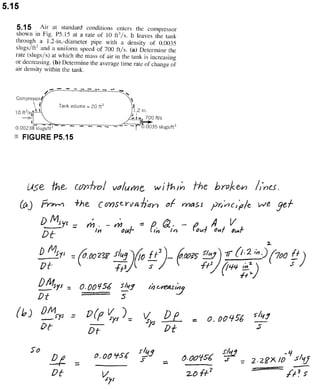 5.15
5.15 Air at standard conditions enters the compressor
shown in Fig. P5.15 at a rate of 10 ft³/s. It leaves the tank
through a 1.2-in.-diameter pipe with a density of 0.0035
slugs/ft³ and a uniform speed of 700 ft/s. (a) Determine the
rate (slugs/s) at which the mass of air in the tank is increasing
or decreasing. (b) Determine the average time rate of change of
air density within the tank.
Compressor
Tank volume = 20 ft³
10 ft³/s
1.2 in.
700 ft/s
0.00238 slugs/ft³
0.0035 slugs/ft³
FIGURE P5.15
Use the control volume within the broken lines.
(a) From the conservation of mass principle we get
DM_sys/Dt = ṁ_in - ṁ_out = ρ_in Q_in - ρ_out A_out V_out
DM_sys/Dt = (0.00238 slug/ft³)(10 ft³/s) - (0.0035 slug/ft³) π(1.2 in.)²/4(144 in²/ft²) (700 ft/s)
DM_sys/Dt = 0.00456 slug/s increasing
(b) DM_sys/Dt = D(ρ V_sys)/Dt = V_sys Dρ/Dt = 0.00456 slug/s
So
Dρ/Dt = 0.00456 slug/s / V_sys = 0.00456 slug/s / 20 ft³ = 2.28 x 10⁻⁴ slug/ft³·s